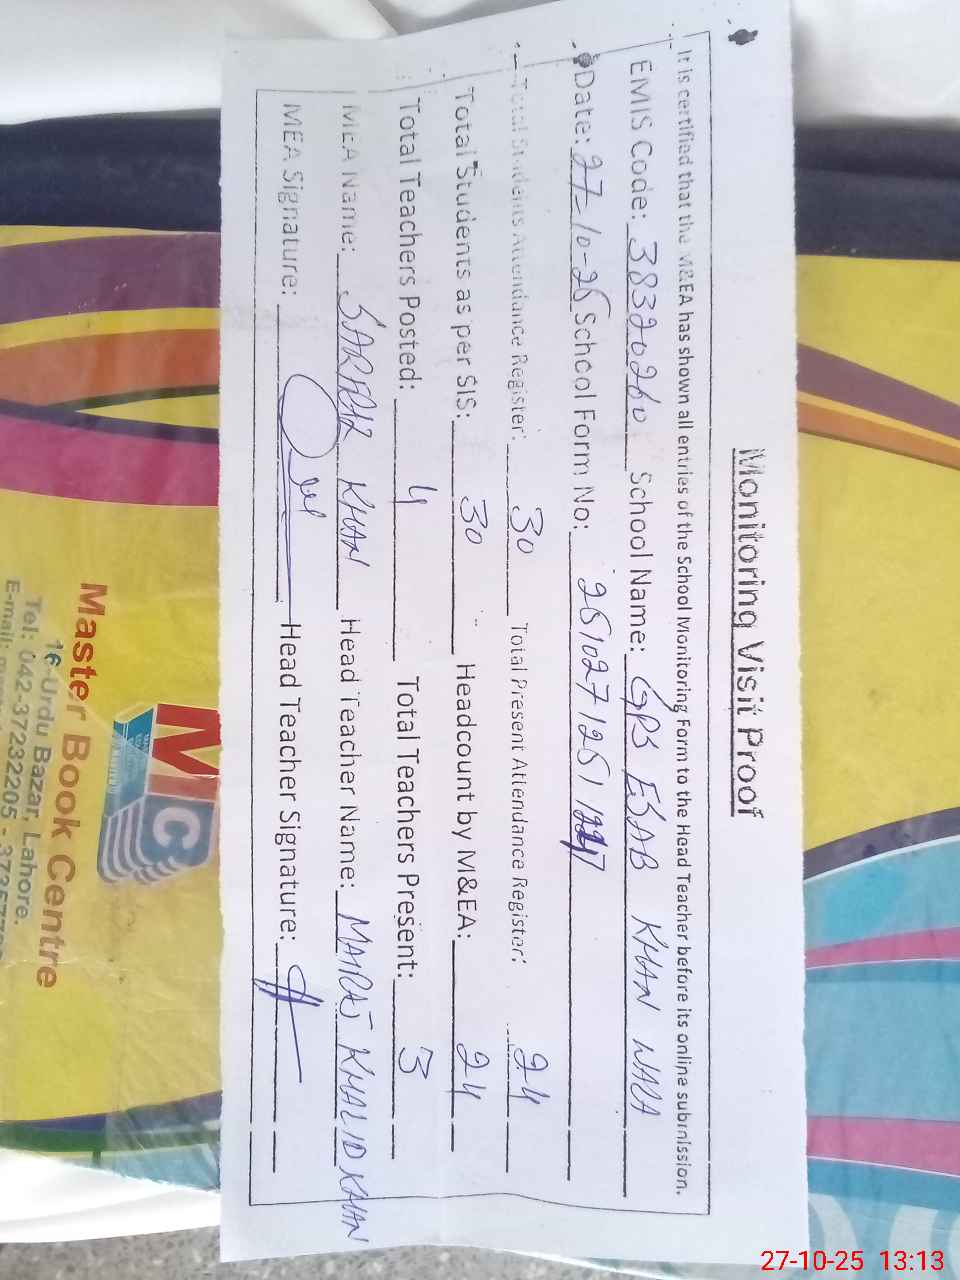 Monitoring Visit Proof
It is certified that the M&EA has shown all entries of the School Monitoring Form to the Head Teacher before its online submission.
EMIS Code: 38320260 School Name: GPS ESAB KHAN WALA
Date: 27-10-25 School Form No:
Total Students Attendance Register: 30 Total Present Attendance Register: 24
Total Students as per SIS: 30 Headcount by M&EA: 24
Total Teachers Posted: 4 Total Teachers Present: 3
MEA Name: KHAN Head Teacher Name: MAIRAJ KHALID KHAN
MEA Signature: Head Teacher Signature:
MC
Master Book Centre
16-Urdu Bazar, Lahore.
Tel: 042-37232205 -
E-mail:
27-10-25 13:13